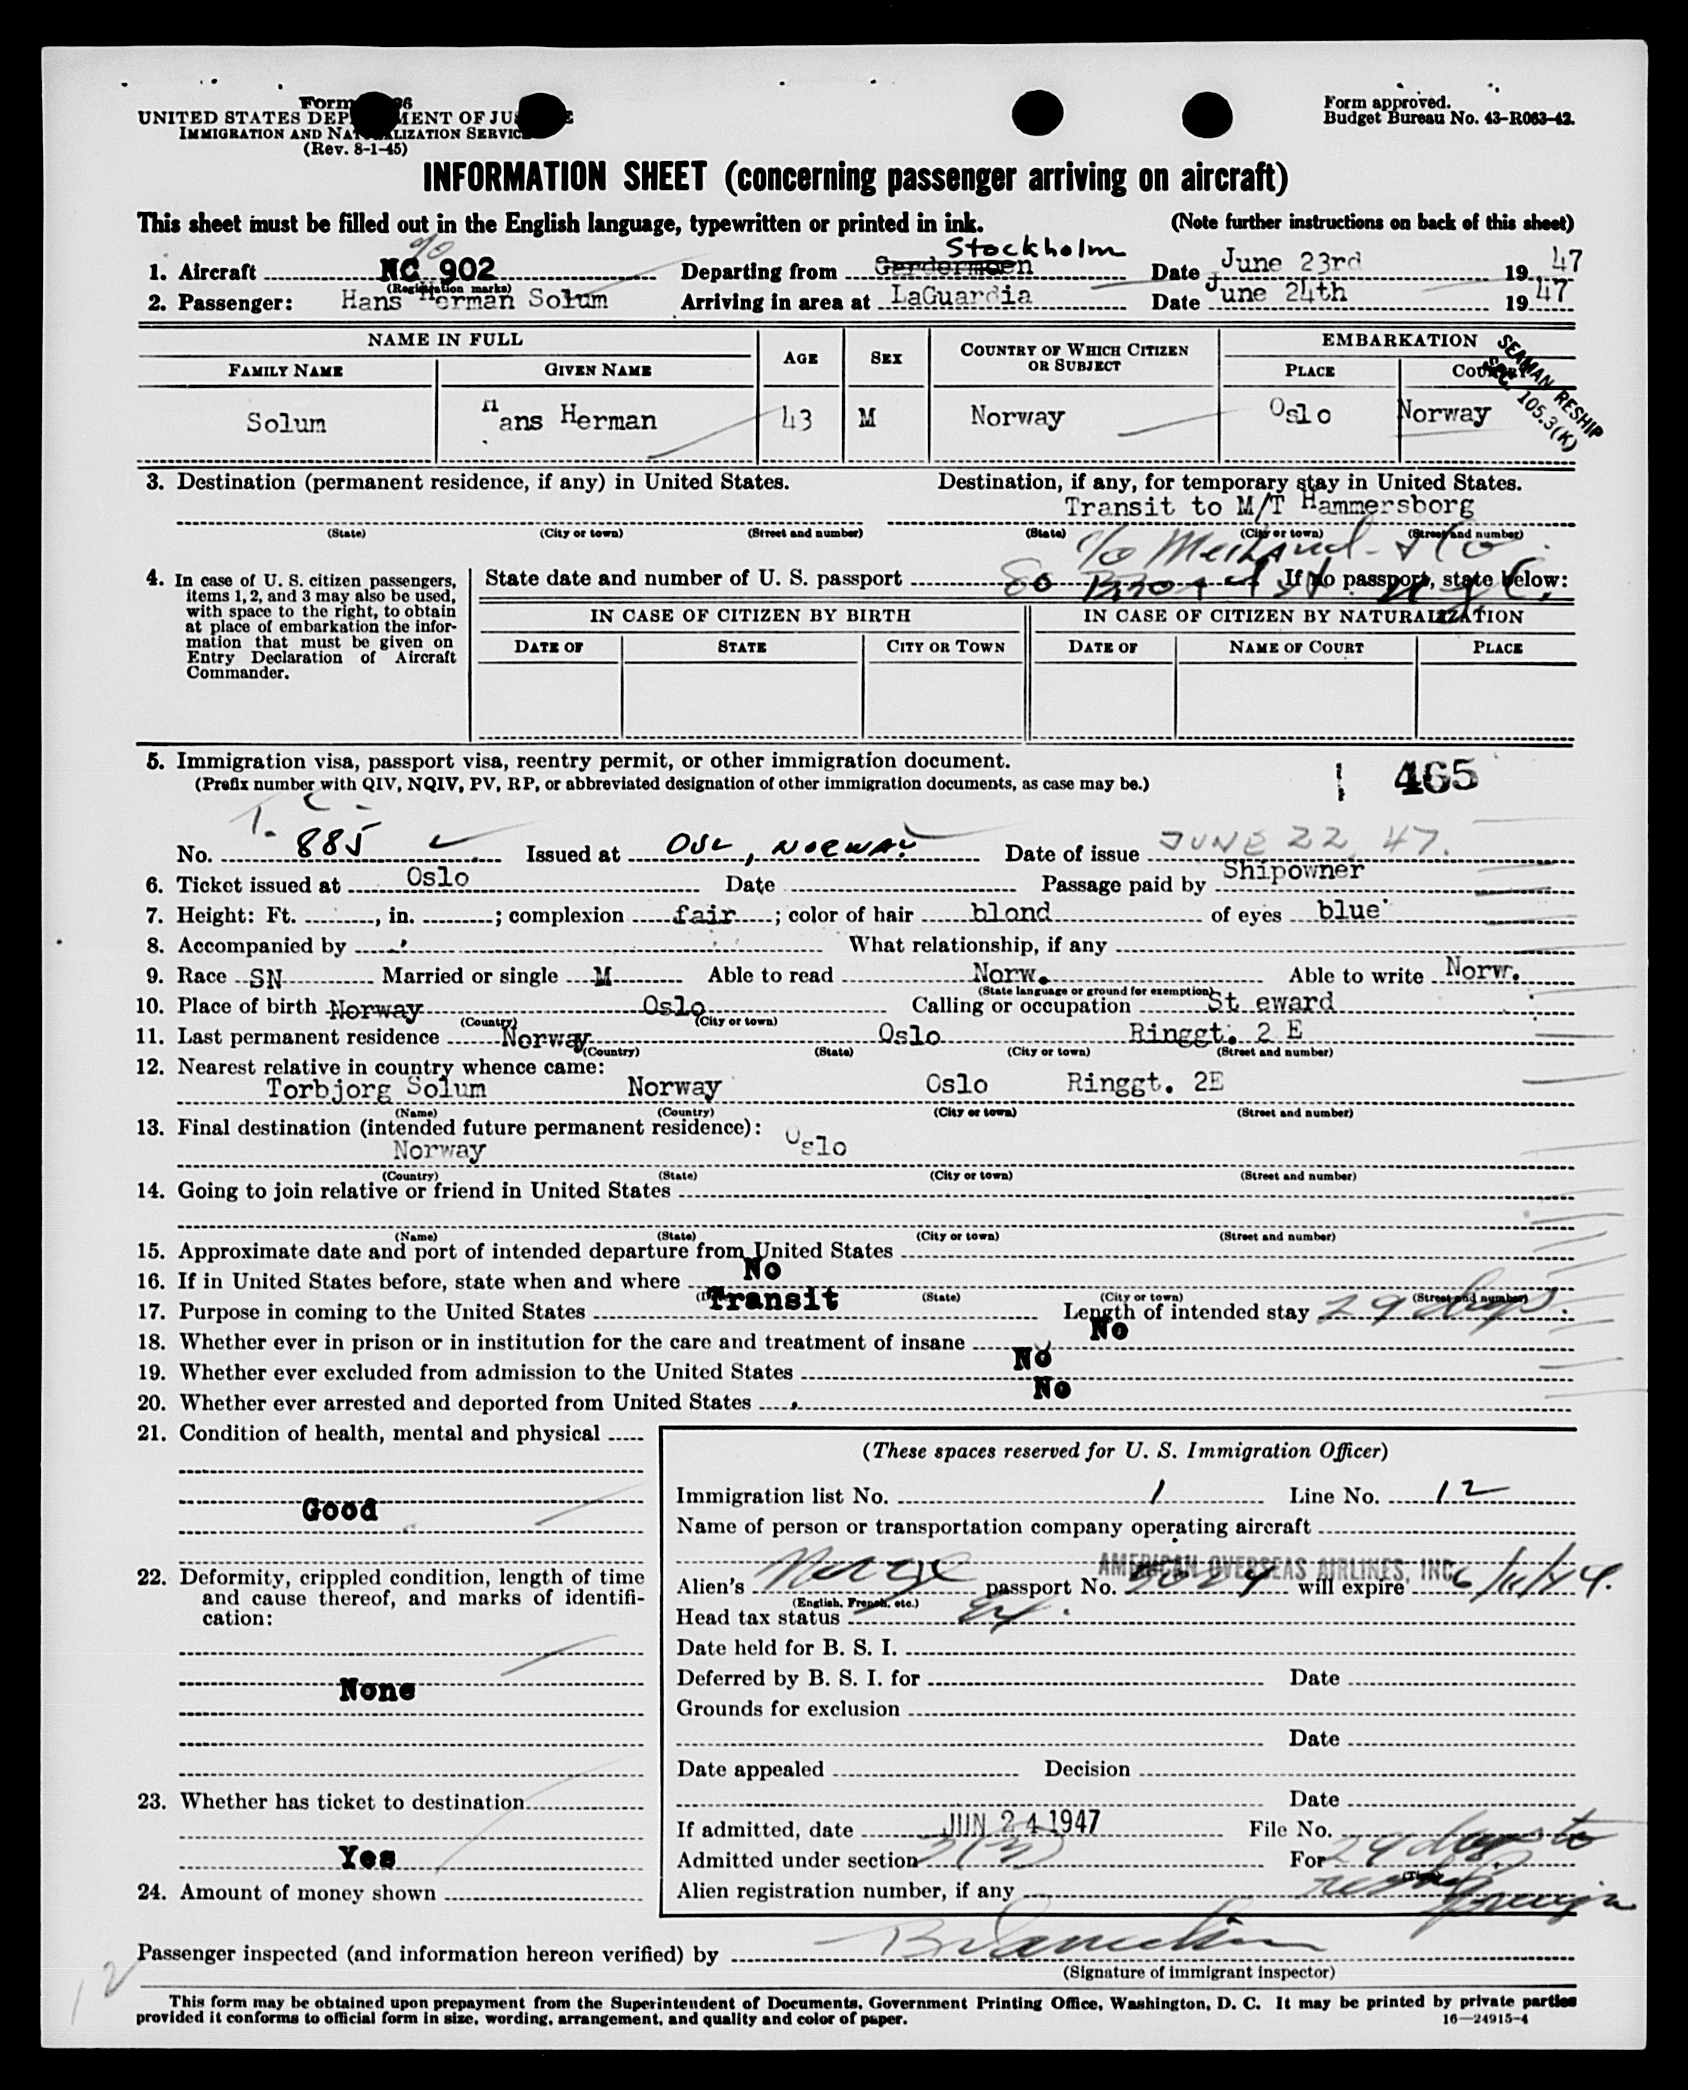 Form
UNITED STATES DEPARTMENT OF JUSTICE
IMMIGRATION AND NATURALIZATION SERVICE
(Rev. 8-1-45)
Form approved.
Budget Bureau No. 43-R063-42.
INFORMATION SHEET (concerning passenger arriving on aircraft)
This sheet must be filled out in the English language, typewritten or printed in ink. (Note further instructions on back of this sheet)
Stockholm
1. Aircraft NC 902 Departing from Gardermoen Date June 23rd 1947
(Registration marks)
2. Passenger: Hans Herman Solum Arriving in area at LaGuardia Date June 24th 1947
NAME IN FULL AGE SEX COUNTRY OF WHICH CITIZEN OR SUBJECT EMBARKATION
FAMILY NAME GIVEN NAME PLACE COUNTRY
SEAMAN RESHIP
SEC. 105.3(K)
Solum Hans Herman 43 M Norway Oslo Norway
3. Destination (permanent residence, if any) in United States. Destination, if any, for temporary stay in United States.
Transit to M/T Hammersborg
(State) (City or town) (Street and number) (State) (City or town) (Street and number)
80 Broad St. N.Y.C.
4. In case of U. S. citizen passengers, items 1, 2, and 3 may also be used, with space to the right, to obtain at place of embarkation the information that must be given on Entry Declaration of Aircraft Commander.
State date and number of U. S. passport If no passport, state below:
IN CASE OF CITIZEN BY BIRTH IN CASE OF CITIZEN BY NATURALIZATION
DATE OF STATE CITY OR TOWN DATE OF NAME OF COURT PLACE
5. Immigration visa, passport visa, reentry permit, or other immigration document.
(Prefix number with QIV, NQIV, PV, RP, or abbreviated designation of other immigration documents, as case may be.)
465
No. 885 Issued at OSL, NORWAY Date of issue JUNE 22, 47.
6. Ticket issued at Oslo Date Passage paid by Shipowner
7. Height: Ft. , in. ; complexion fair ; color of hair blond of eyes blue
8. Accompanied by What relationship, if any
9. Race SN Married or single M Able to read Norw. Able to write Norw.
(State language or ground for exemption)
10. Place of birth Norway Oslo Calling or occupation St eward
(Country) (City or town)
11. Last permanent residence Norway Oslo Ringgt. 2 E
(Country) (State) (City or town) (Street and number)
12. Nearest relative in country whence came:
Torbjorg Solum Norway Oslo Ringgt. 2E
(Name) (Country) (City or town) (Street and number)
13. Final destination (intended future permanent residence):
Norway Oslo
(Country) (State) (City or town) (Street and number)
14. Going to join relative or friend in United States
(Name) (State) (City or town) (Street and number)
15. Approximate date and port of intended departure from United States
16. If in United States before, state when and where No
(State) (City or town) (Street and number)
17. Purpose in coming to the United States Transit Length of intended stay 29 days.
18. Whether ever in prison or in institution for the care and treatment of insane No
19. Whether ever excluded from admission to the United States No
20. Whether ever arrested and deported from United States No
21. Condition of health, mental and physical
Good
22. Deformity, crippled condition, length of time and cause thereof, and marks of identification:
None
23. Whether has ticket to destination
Yes
24. Amount of money shown
(These spaces reserved for U. S. Immigration Officer)
Immigration list No. 1 Line No. 12
Name of person or transportation company operating aircraft
AMERICAN OVERSEAS AIRLINES, INC.
Alien's passport No. will expire
(English, French, etc.)
Head tax status
Date held for B. S. I.
Deferred by B. S. I. for Date
Grounds for exclusion
Date
Date appealed Decision
Date
If admitted, date JUN 24 1947 File No.
Admitted under section 3(3) For 29 days to
(Time)
Alien registration number, if any reship foreign
Passenger inspected (and information hereon verified) by
(Signature of immigrant inspector)
12
This form may be obtained upon prepayment from the Superintendent of Documents, Government Printing Office, Washington, D. C. It may be printed by private parties
provided it conforms to official form in size, wording, arrangement, and quality and color of paper. 16—24915-4